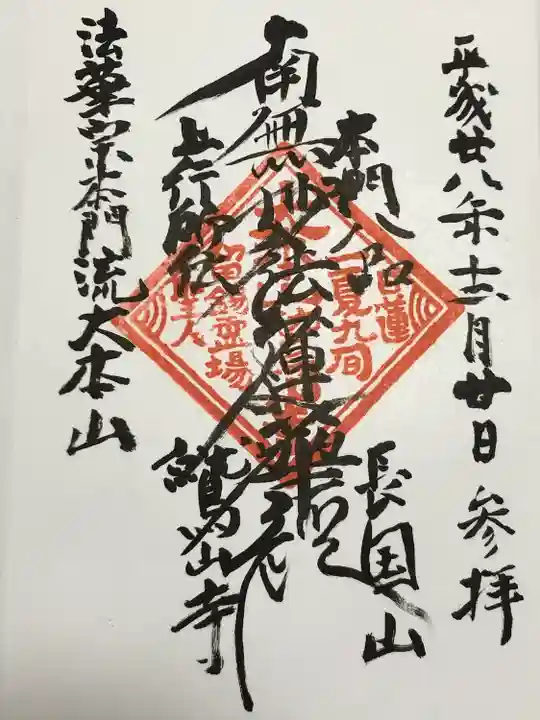 平成廿八年十二月廿日 参拝
本門八品
長国山
南無妙法蓮華経
上行所伝
鷲山寺
法華宗本門流大本山
日蓮
一夏九旬
霊場